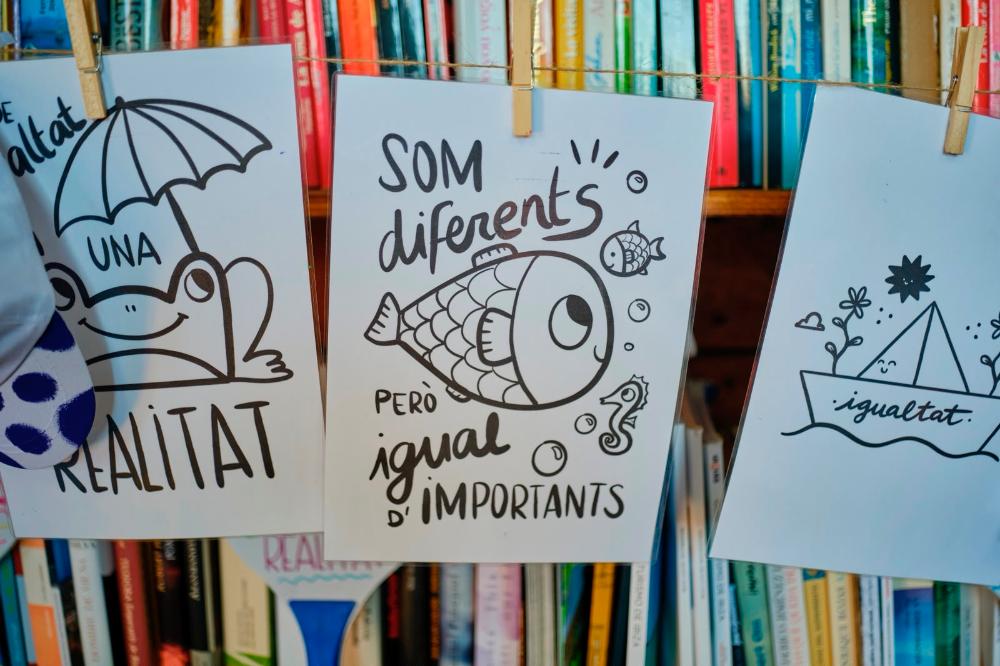 DE
altat
UNA
REALITAT
SOM
diferents
PERÒ
igual
D'IMPORTANTS
·igualtat·
REALITAT